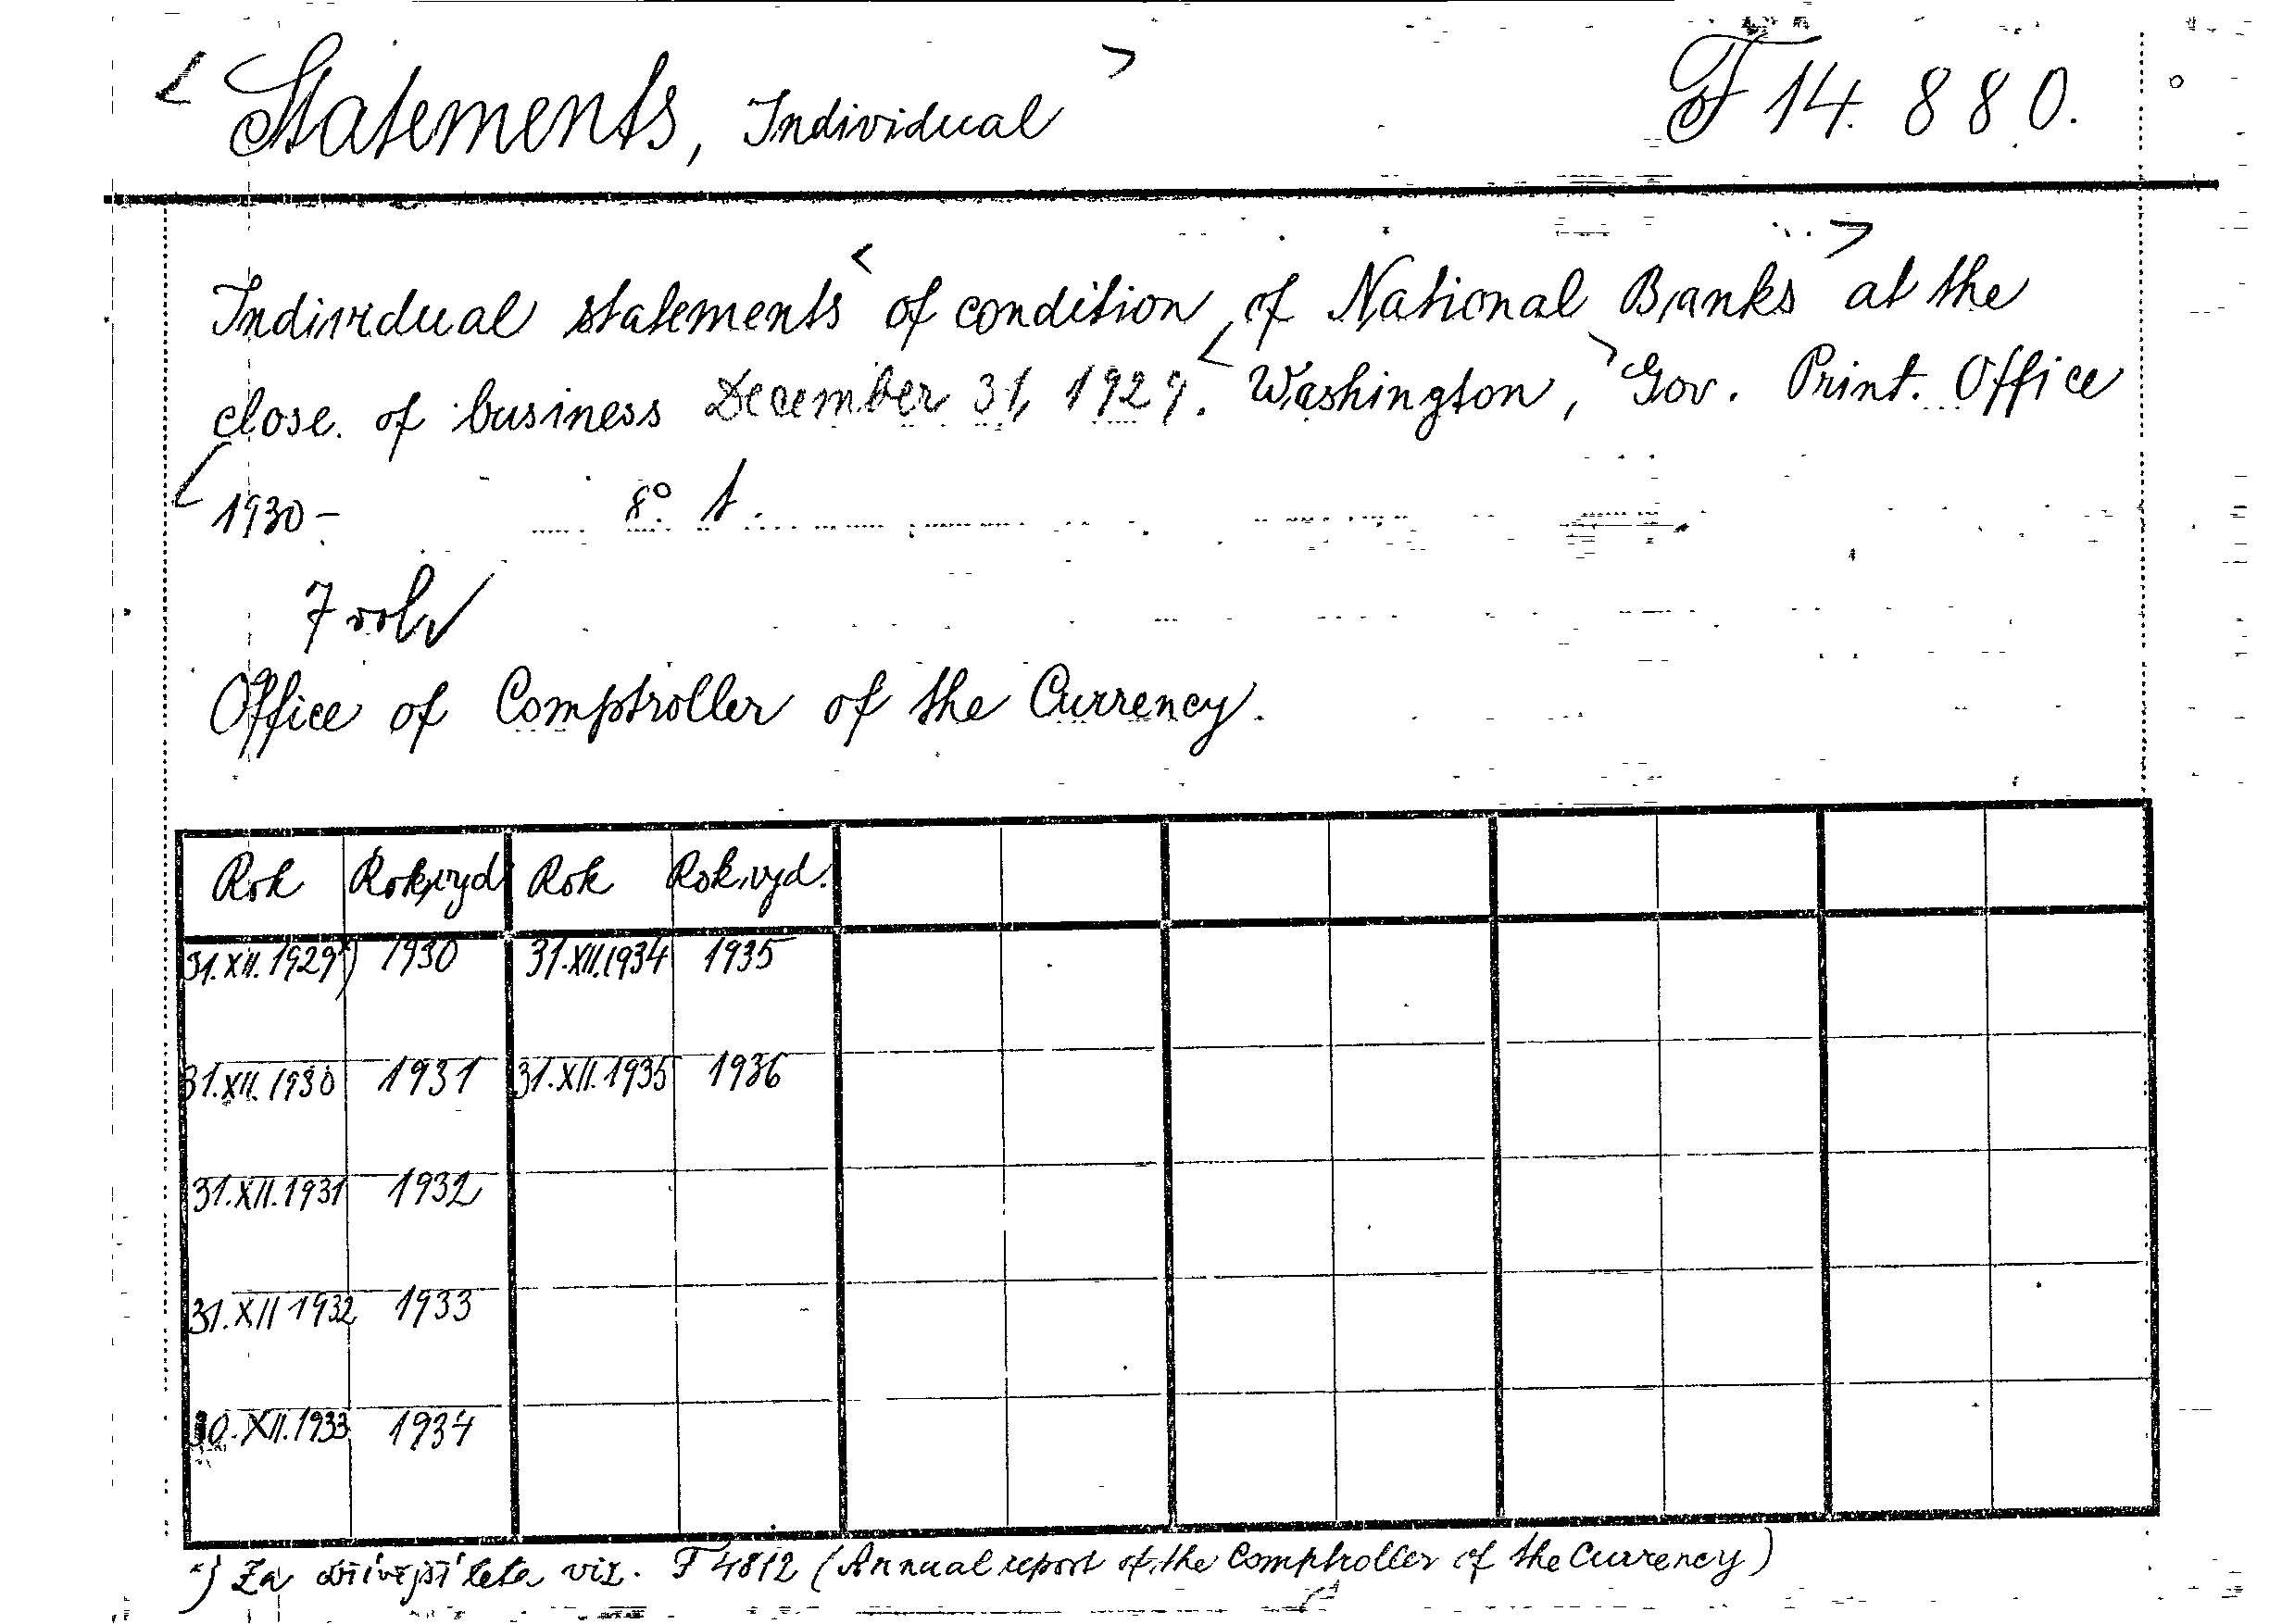 < Statements, Individual > F 14.880.
Individual statements < of condition of National Banks > at the
close of business December 31, 1929. < Washington, > Gov. Print. Office
1930- 8° t.
7 vol
Office of Comptroller of the Currency.
Rok Rok vyd Rok Rok vyd.
31.XII.1929*) 1930 31.XII.1934 1935
31.XII.1930 1931 31.XII.1935 1936
31.XII.1931 1932
31.XII 1932 1933
30.XII.1933 1934
*) Za dřívější léta viz. F 4812 (Annual report of the Comptroller of the Currency)